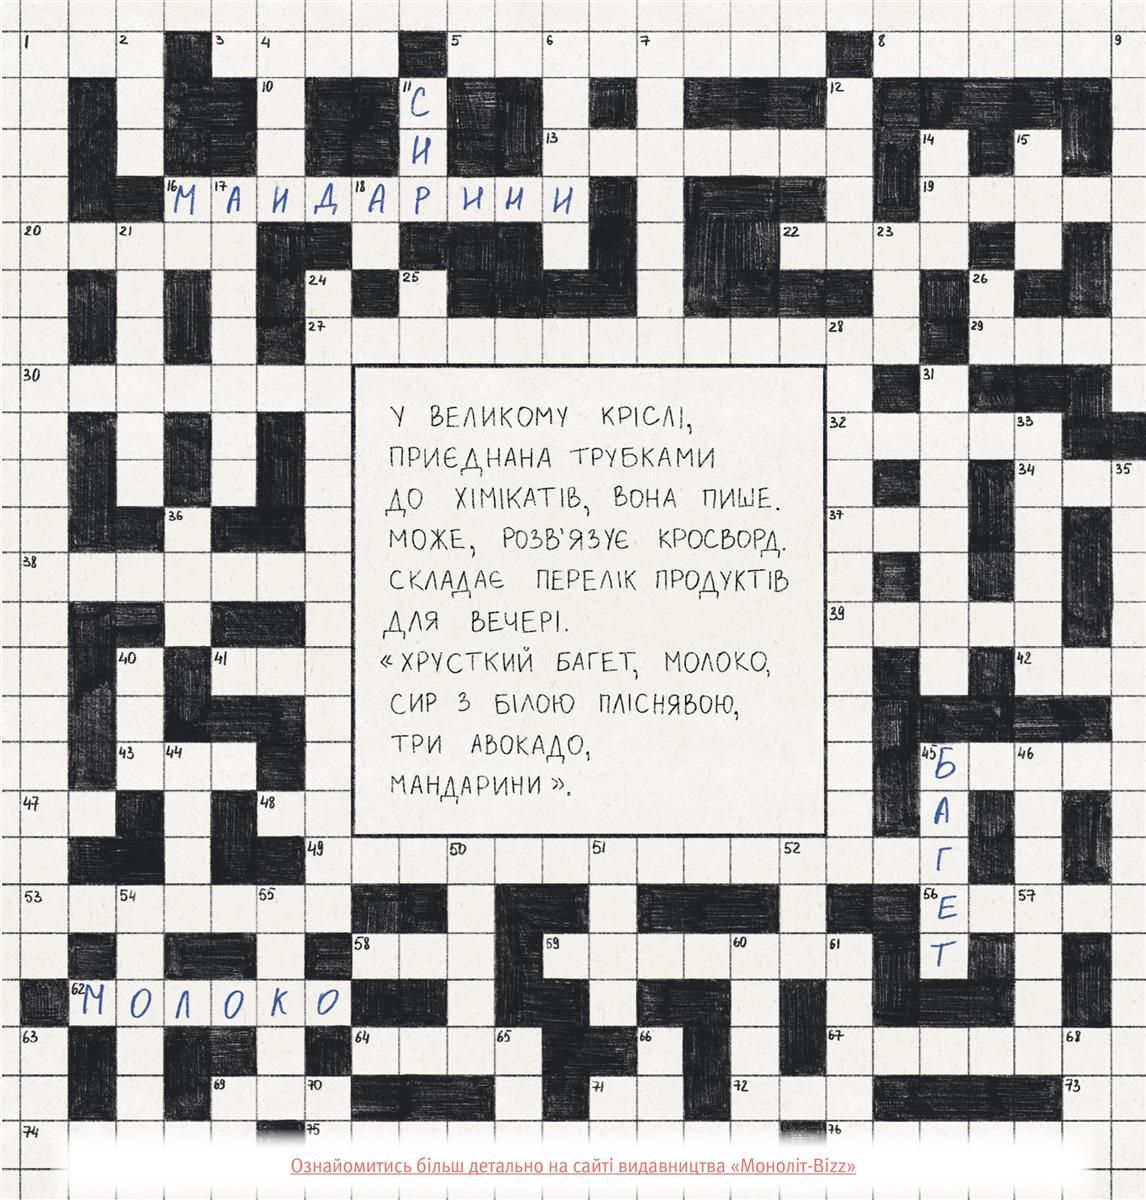 1 2 3 4 5 6 7 8 9
10 11 С 12
И 13 14 15
16 17 18 МАНДАРИНИ 19
20 21 22 23
24 25 26
27 28 29
30 31
У ВЕЛИКОМУ КРІСЛІ,
ПРИЄДНАНА ТРУБКАМИ
ДО ХІМІКАТІВ, ВОНА ПИШЕ.
МОЖЕ, РОЗВ'ЯЗУЄ КРОСВОРД.
СКЛАДАЄ ПЕРЕЛІК ПРОДУКТІВ
ДЛЯ ВЕЧЕРІ.
«ХРУСТКИЙ БАГЕТ, МОЛОКО,
СИР З БІЛОЮ ПЛІСНЯВОЮ,
ТРИ АВОКАДО,
МАНДАРИНИ».
32 33
34 35
36 37
38
39
40 41 42
43 44 45 Б 46
47 48 А
49 50 51 52 Г
53 54 55 56 Е 57
58 59 60 61 Т
62 МОЛОКО
63 64 65 66 67 68
69 70 71 72 73
74 75 76
Ознайомитись більш детально на сайті видавництва «Моноліт-Bizz»